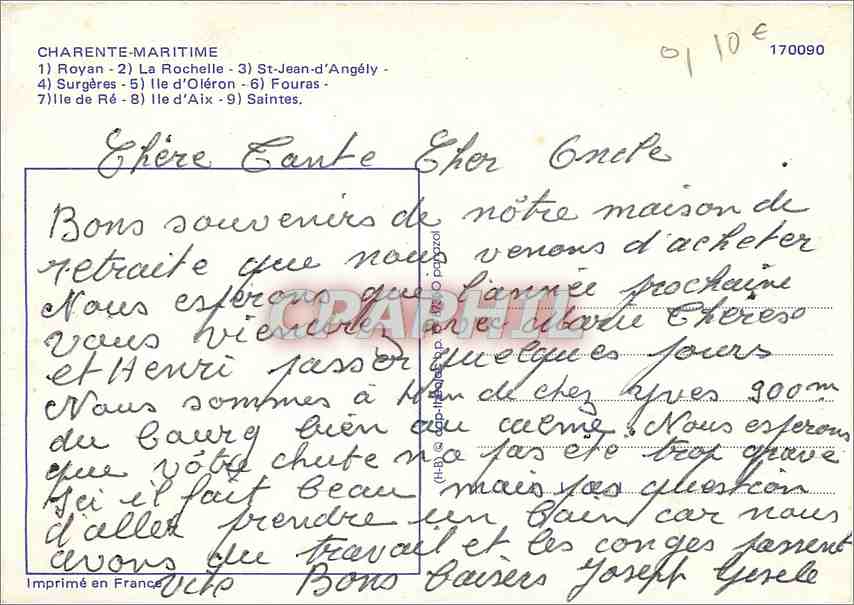 CHARENTE-MARITIME
1) Royan - 2) La Rochelle - 3) St-Jean-d'Angély -
4) Surgères - 5) Ile d'Oléron - 6) Fouras -
7) Ile de Ré - 8) Ile d'Aix - 9) Saintes.
0,10 €
170090
Chère Tante Cher Oncle
Bons souvenirs de nôtre maison de
retraite que nous venons d'acheter
Nous esperons que l'année prochaine
vous viendrez avec Marie Thérèse
et Henri passer quelques jours
Nous sommes à de chez Yves 900m
du bourg bien au calme. Nous esperons
que vôtre chute n'a pas été trop grave
Ici il fait beau mais pas question
d'aller prendre un bain car nous
avons du travail et les conges passent
vite Bons baisers Joseph Gisele
Imprimé en France
(H-B) ©
CPAPHIL